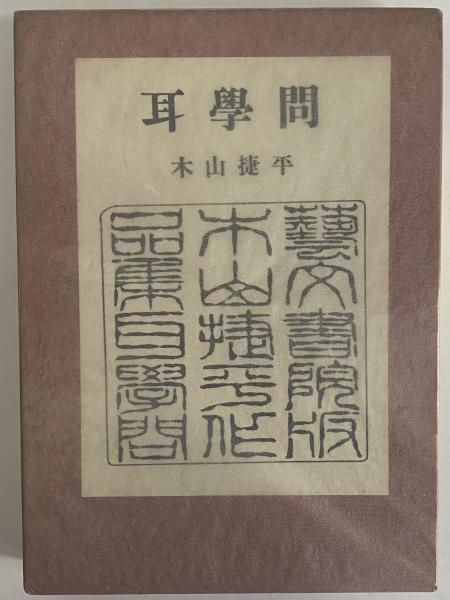 耳學問
木山捷平
藝文書院版
木山捷平作
品集耳學問